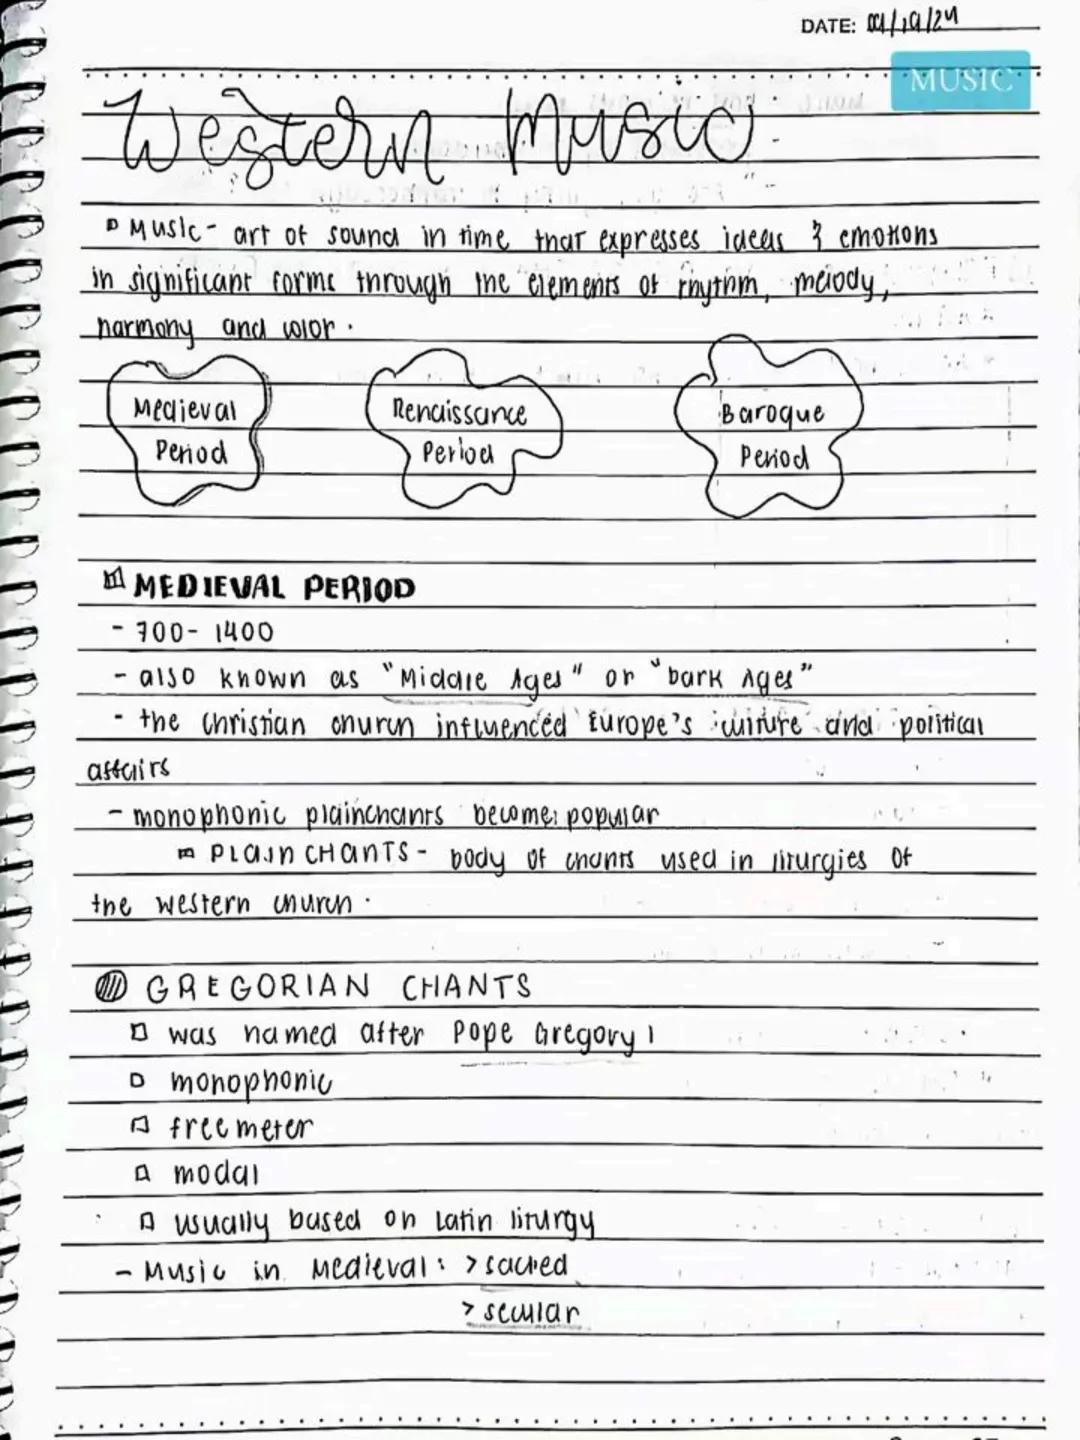 DATE: 09/19/24
MUSIC
Western Music
Music - art of sound in time that expresses ideas & emotions
in significant forms through the elements of rhythm, melody,
harmony and color.
Medieval Period
Renaissance Period
Baroque Period
MEDIEVAL PERIOD
- 700 - 1400
- also known as "Middle Ages" or "Dark Ages"
- the Christian church influenced Europe's culture and political
affairs
- monophonic plainchants become popular
PLAIN CHANTS - body of chants used in liturgies of
the western church.
GREGORIAN CHANTS
was named after Pope Gregory I
monophonic
free meter
modal
usually based on Latin liturgy
- Music in Medieval: > sacred
> secular